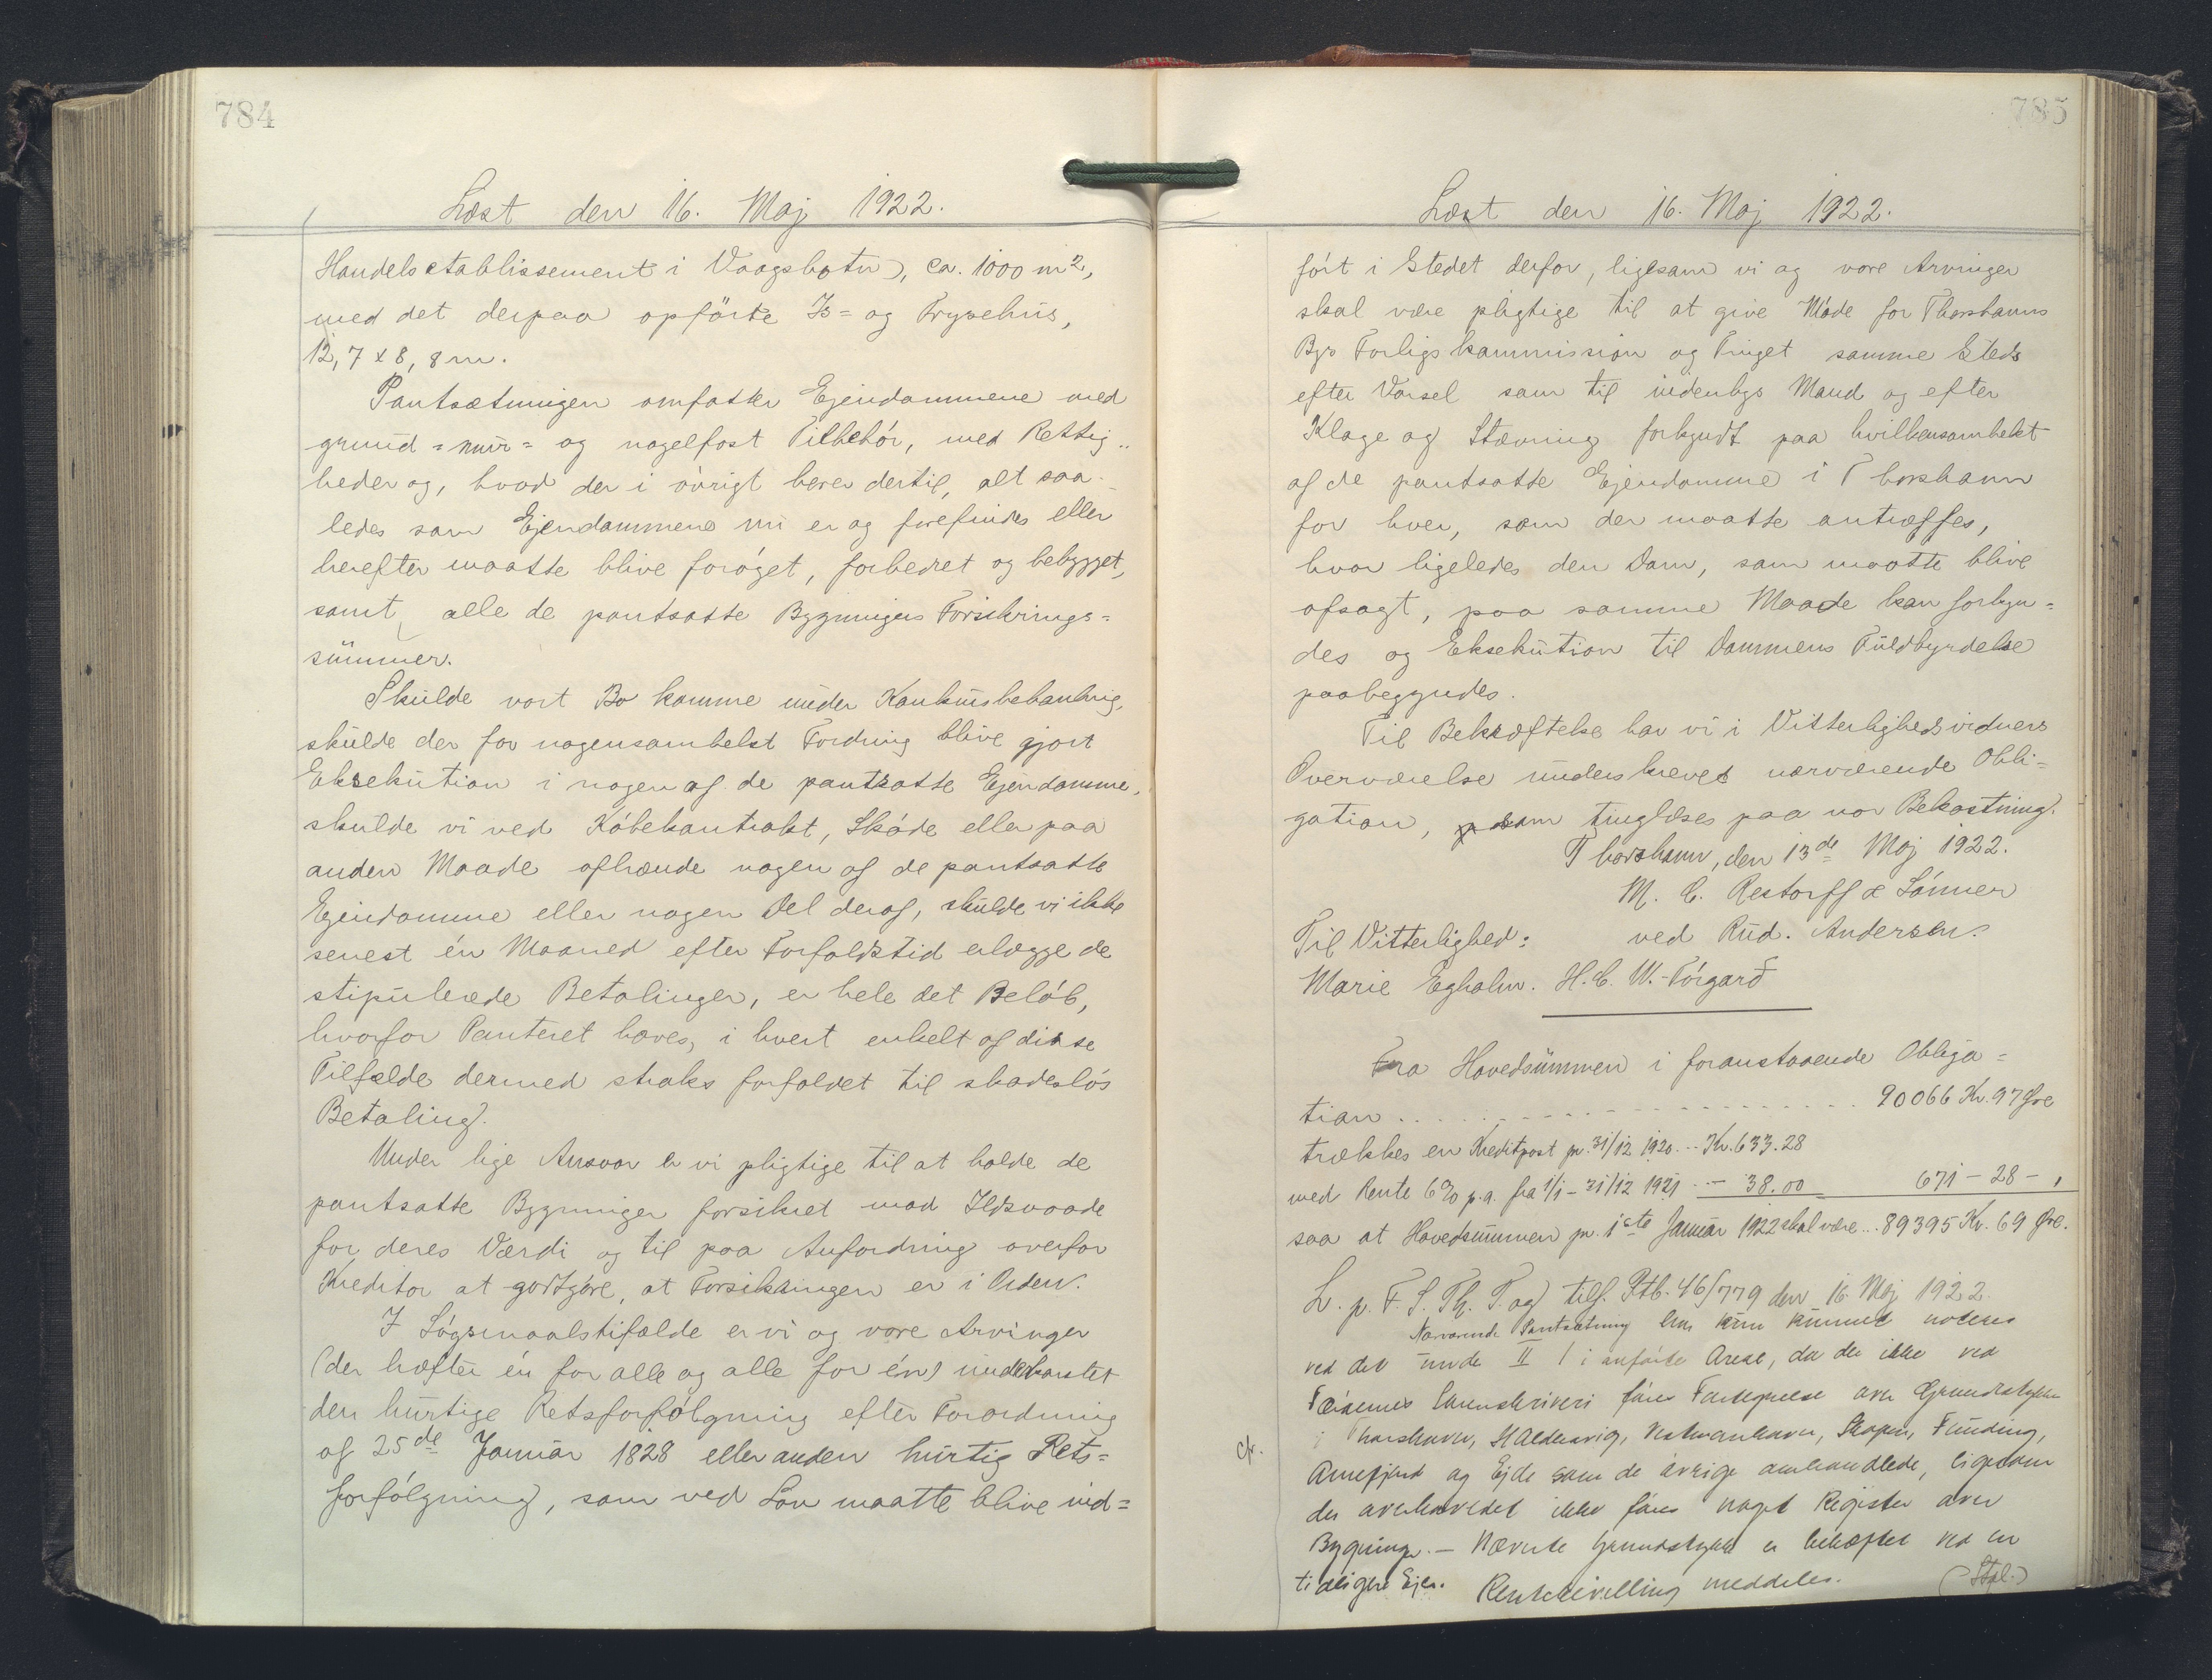 784
Læst den 16. Maj 1922.
Handelsetablissement i Vaagsbotn), ca. 1000 m²,
med det derpaa opførte Is= og Frysehus,
12,7 x 8,8 m.
Pantsætningen omfatter Ejendommene med
grund = mur = og nagelfast Tilbehör, med Rettig..
heder og, hvad der i øvrigt hører dertil, alt saa-
ledes som Ejendommene nu er og forefindes eller
herefter maatte blive forøget, forbedret og bebygget,
samt alle de pantsatte Bygningers Forsikrings=
summer.
Skulde vort Bo komme under Konkursbehandling,
skulde der for nogensomhelst Fordring blive gjort
Eksekution i nogen af de pantsatte Ejendomme,
skulde vi ved Købekontrakt, Skøde eller paa
anden Maade afhænde nogen af de pantsatte
Ejendomme eller nogen Del deraf, skulde vi ikke
senest én Maaned efter Forfaldstid erlægge de
stipulerede Betalinger, er hele det Beløb,
hvorfor Panteret haves, i hvert enkelt af disse
Tilfælde dermed straks forfaldet til skadesløs
Betaling.
Under lige Ansvar er vi pligtige til at holde de
pantsatte Bygninger forsikret mod Ildsvaade
for deres Værdi og til paa Anfordring overfor
Kreditor at godtgøre, at Forsikringen er i Orden.
I Søgsmaalstilfælde er vi og vore Arvinger
(der hæfter én for alle og alle for én) underkastet
den hurtige Retsforfølgning efter Forordning
af 25de Januar 1828 eller anden hurtig Rets=
forfølgning, som ved Lov maatte blive ind=
785
Læst den 16. Maj 1922.
ført i Stedet derfor, ligesom vi og vore Arvinger
skal være pligtige til at give Møde for Thorshavns
Bys Forligskommission og Tinget samme Steds
efter Varsel som til indenbys Mand og efter
Klage og Stævning forkyndt paa hvilkensomhelst
af de pantsatte Ejendomme i Thorshavn
for hver, som der maatte antræffes,
hvor ligeledes den Dom, som maatte blive
afsagt, paa samme Maade kan forkyn=
des og Eksekution til Dommens Fuldbyrdelse
paabegyndes.
Til Bekræftelse har vi i Vitterlighedsvidners
Overværelse underskrevet nærværende Obli=
gation, som tinglæses paa vor Bekostning.
Thorshavn, den 13de Maj 1922.
M. C. Restorff & Sønner
Til Vitterlighed: ved Rud. Andersen.
Marie Egholm. H. C. W. Tórgarð
Fra Hovedsummen i foranstaaende Obliga=
tion . . . . 90066 Kr. 97 Øre
trækkes en Kreditpost pr. 31/12 1920 .. Kr. 633.28
med Rente 6% p.a. fra 1/1 - 31/12 1921 .. — 38.00 671 - 28 - ,
saa at Hovedsummen pr. 1ste Januar 1922 skal være... 89395 Kr. 69 Øre.
L. p. F. S. Th. T. og tilf. Ptb. 46/779 den 16. Maj 1922.
Nærværende Pantsætning har kun kunnet noteres
ved det under II 1 i anførte Areal, da der ikke ved
Færøernes Sorenskriveri føres Fortegnelse over Grundstykker
i Thorshavn, Haldersvig, Vestmanhavn, Skopen, Funding,
cfr.
Arnefjord og Ejde som de øvrige omhandlede, ligesom
der overhovedet ikke føres noget Register over
Bygninger. — Nævnte Grundstykke er behæftet ved en
tidligere Ejer. Rentebevilling meddeles. (Stpl.)